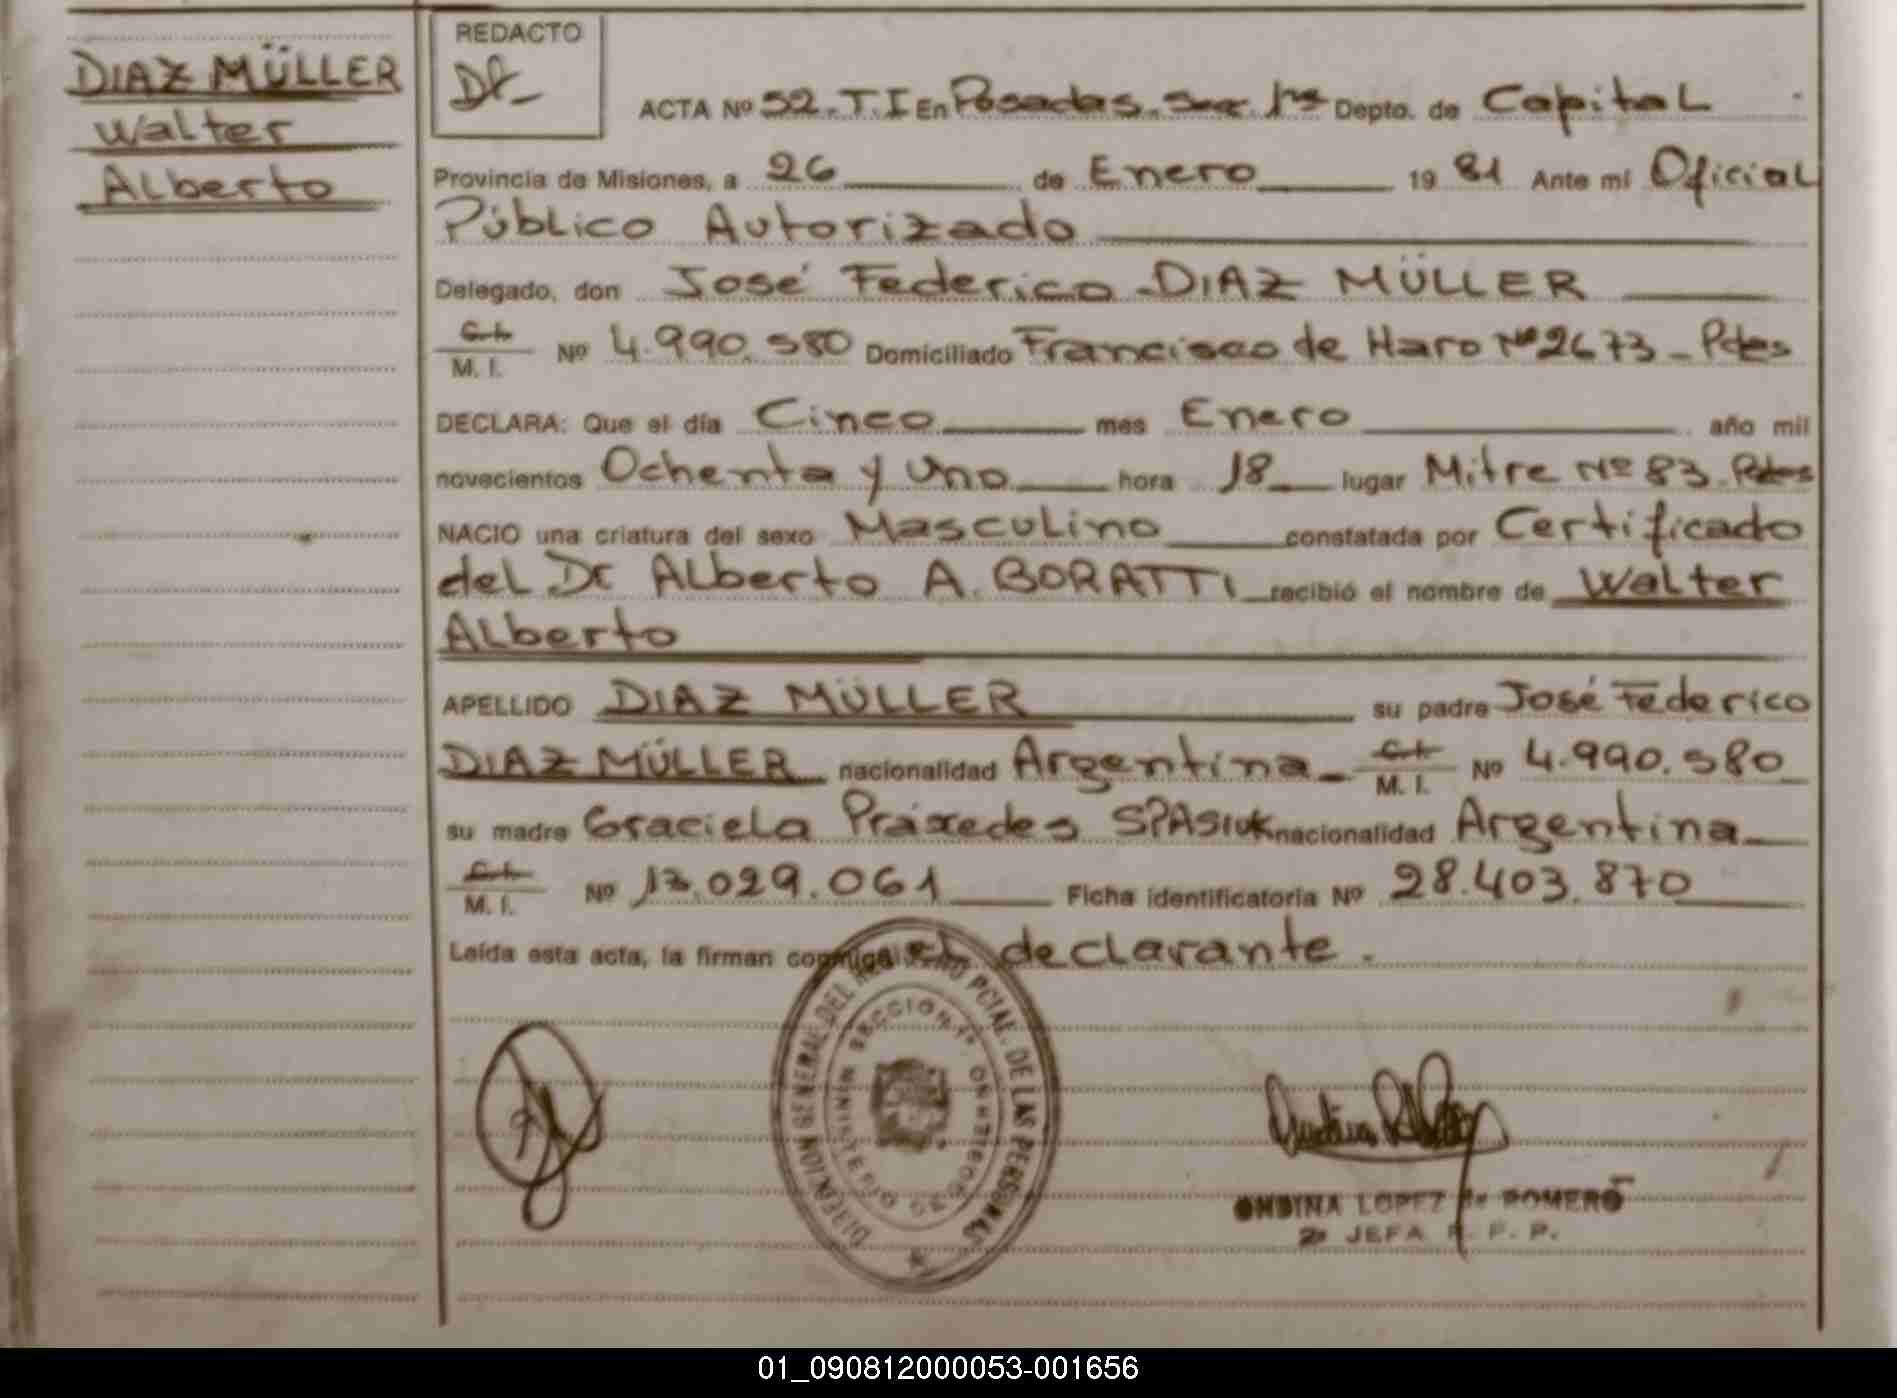 DIAZ MÜLLER
Walter
Alberto
REDACTO
ACTA Nº 52.T.I En Posadas. Sec. 1ra Depto. de Capital
Provincia de Misiones, a 26 de Enero 19 81 Ante mi Oficial
Público Autorizado
Delegado, don José Federico DIAZ MÜLLER
C.I.
M. I. Nº 4.990.580 Domiciliado Francisco de Haro Nº 2673 - Pdas
DECLARA: Que el día Cinco mes Enero año mil
novecientos Ochenta y Uno hora 18 lugar Mitre Nº 83. Pdas
NACIO una criatura del sexo Masculino constatada por Certificado
del Dr Alberto A. BORATTI recibió el nombre de Walter
Alberto
APELLIDO DIAZ MÜLLER su padre José Federico
DIAZ MÜLLER nacionalidad Argentina C.I. M. I. Nº 4.990.580
su madre Graciela Práxedes SPASIUK nacionalidad Argentina
C.I.
M. I. Nº 13.029.061 Ficha identificatoria Nº 28.403.870
Leída esta acta, la firman conmigo el declarante.
DIRECCION GENERAL DEL REGISTRO PCIAL. DE LAS PERSONAS
SECCION 1ª
ONDINA LOPEZ de ROMERO
2ª JEFA R. P. P.
01_090812000053-001656